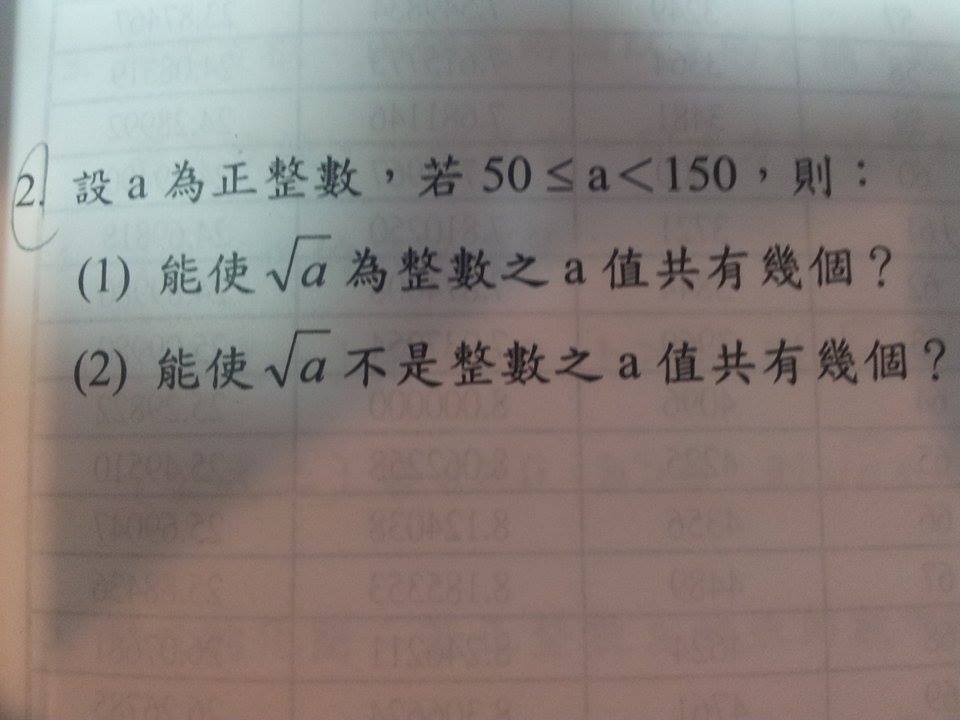 2. 設 a 為正整數，若 50 ≤ a＜150，則：
(1) 能使 √a 為整數之 a 值共有幾個？
(2) 能使 √a 不是整數之 a 值共有幾個？